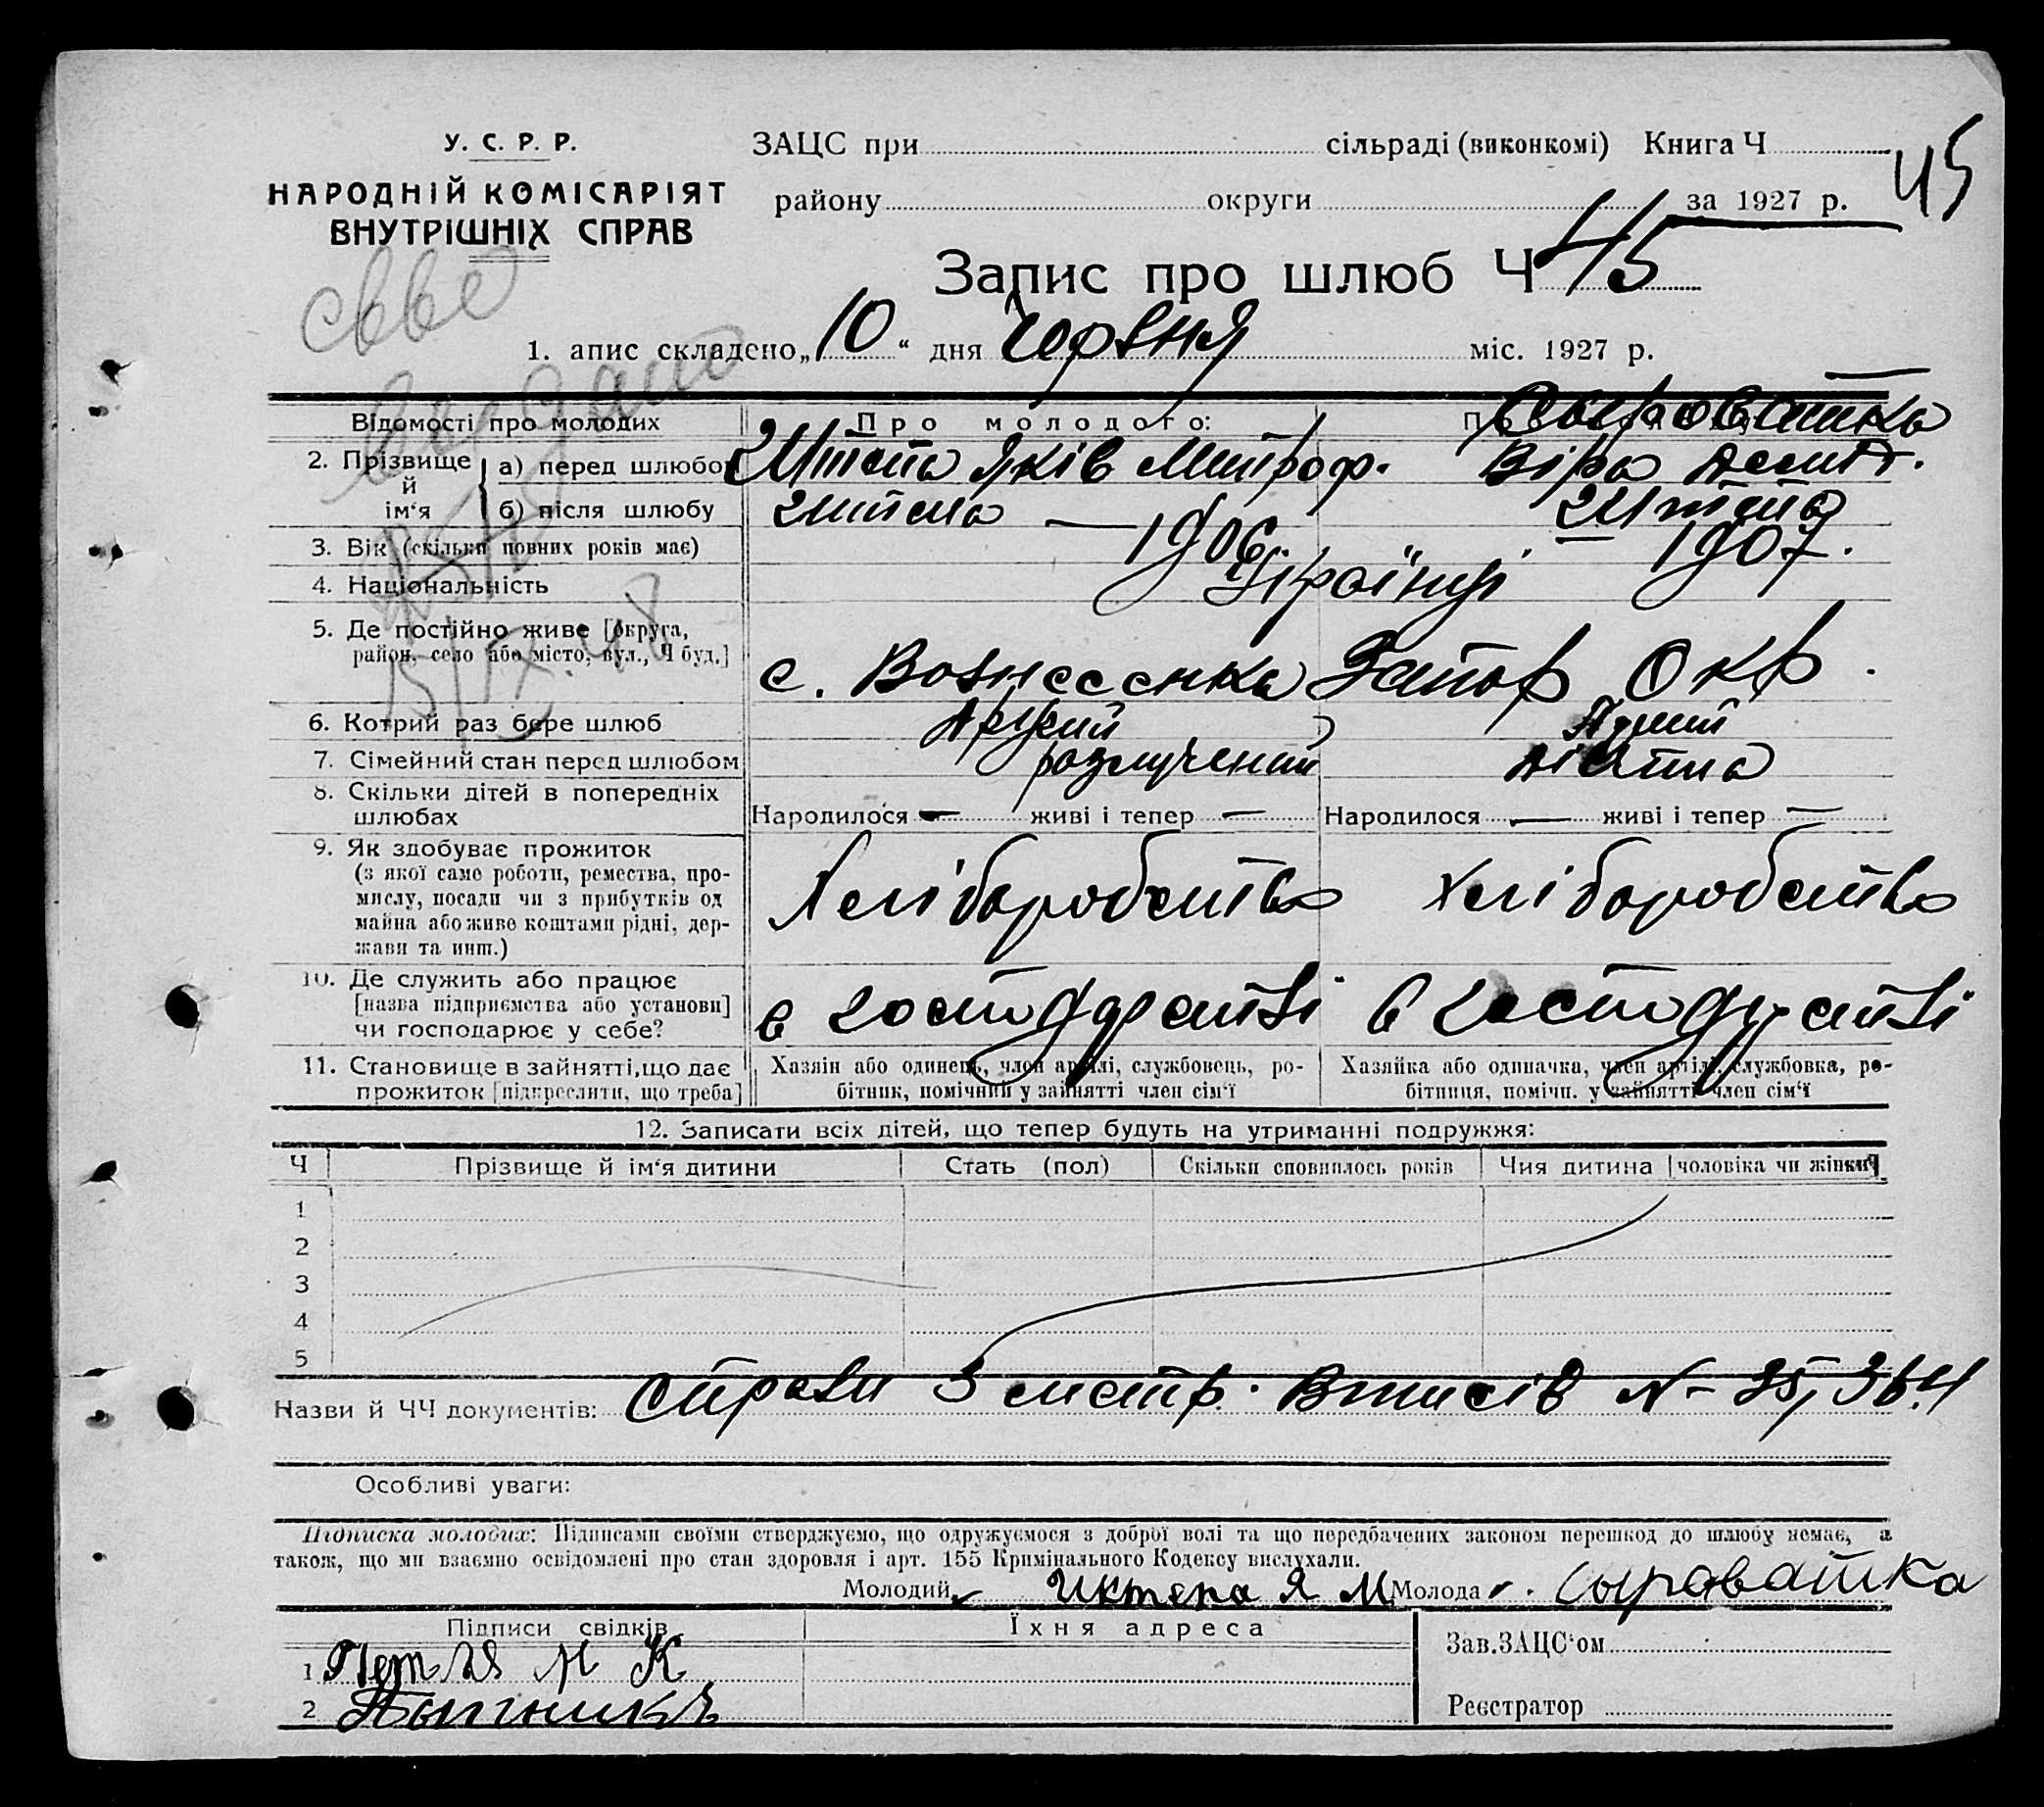 У. С. Р. Р.
НАРОДНІЙ КОМІСАРІЯТ
ВНУТРІШНІХ СПРАВ
ЗАЦС при сільраді (виконкомі) Книга Ч
45
району округи за 1927 р.
Запис про шлюб Ч 45
1. апис складено „10“ дня Червня міс. 1927 р.
Відомості про молодих
Про молодого:
Сыроватка
2. Прізвище й ім‘я
а) перед шлюбом
Яків Митроф.
Віра
б) після шлюбу
3. Вік (скільки повних років має)
1906
1907.
4. Національність
Українці
5. Де постійно живе [округа, район, село або місто, вул., Ч буд.]
с. Вознесенка Запор Окр.
6. Котрий раз бере шлюб
Другий
7. Сімейний стан перед шлюбом
розлучений
дівчина
8. Скільки дітей в попередніх шлюбах
Народилося — живі і тепер —
Народилося — живі і тепер —
9. Як здобуває прожиток
(з якої саме роботи, ремества, промислу, посади чи з прибутків од майна або живе коштами рідні, держави та инш.)
Хліборобство
хліборобство
10. Де служить або працює
[назва підприємства або установи]
чи господарює у себе?
в господарстві
в господарстві
11. Становище в зайнятті, що дає
прожиток [підкреслити, що треба]
Хазяін або одинець, член артілі, службовець, робітник, помічний у зайнятті член сім‘ї
Хазяйка або одиначка, член артілі, службовка, робітниця, помічн. у зайнятті член сім‘ї
12. Записати всіх дітей, що тепер будуть на утриманні подружжя:
Ч Прізвище й ім‘я дитини Стать (пол) Скільки сповнилось років Чия дитина [чоловіка чи жінки]
1
2
3
4
5
Назви й ЧЧ документів: справи
Особливі уваги:
Підписка молодих: Підписами своїми стверджуємо, що одружуємося з доброї волі та що передбачених законом перешкод до шлюбу немає, а
також, що ми взаємно освідомлені про стан здоровля і арт. 155 Кримінального Кодексу вислухали.
Молодий Я М Молода Сыроватка
Підписи свідків
Їхня адреса
Зав. ЗАЦС‘ом
1
2
Реєстратор